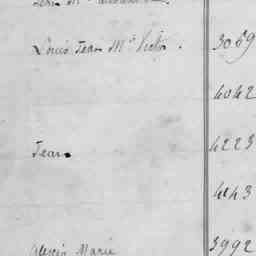 Louis Jean Mie Victor. 3069
4042
Jean 4223
4043
Alexis Marie 3992